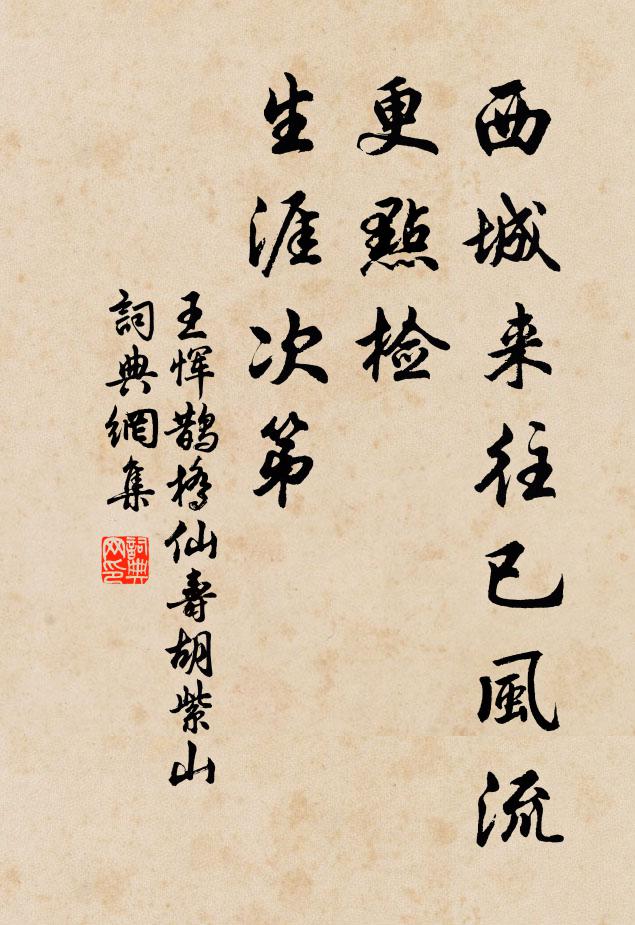 西城来往已風流
更點检
生涯次第
王恽鹊橋仙壽胡紫山
詞典網集
詞典網印